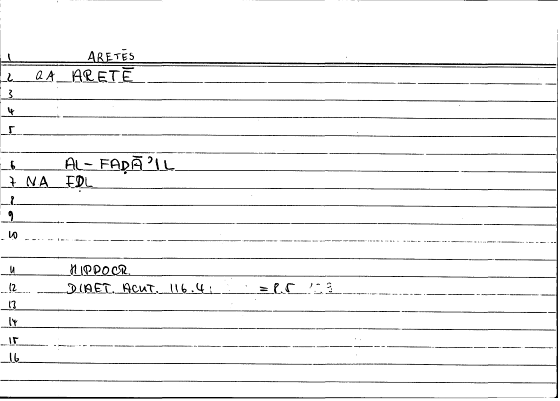 1 ARETĒS
2 QA ARETĒ
3
4
5
6 AL-FAḌĀ'IL
7 NA FḌL
8
9
10
11 HIPPOCR.
12 DIAET. ACUT. 116.4: =
13
14
15
16